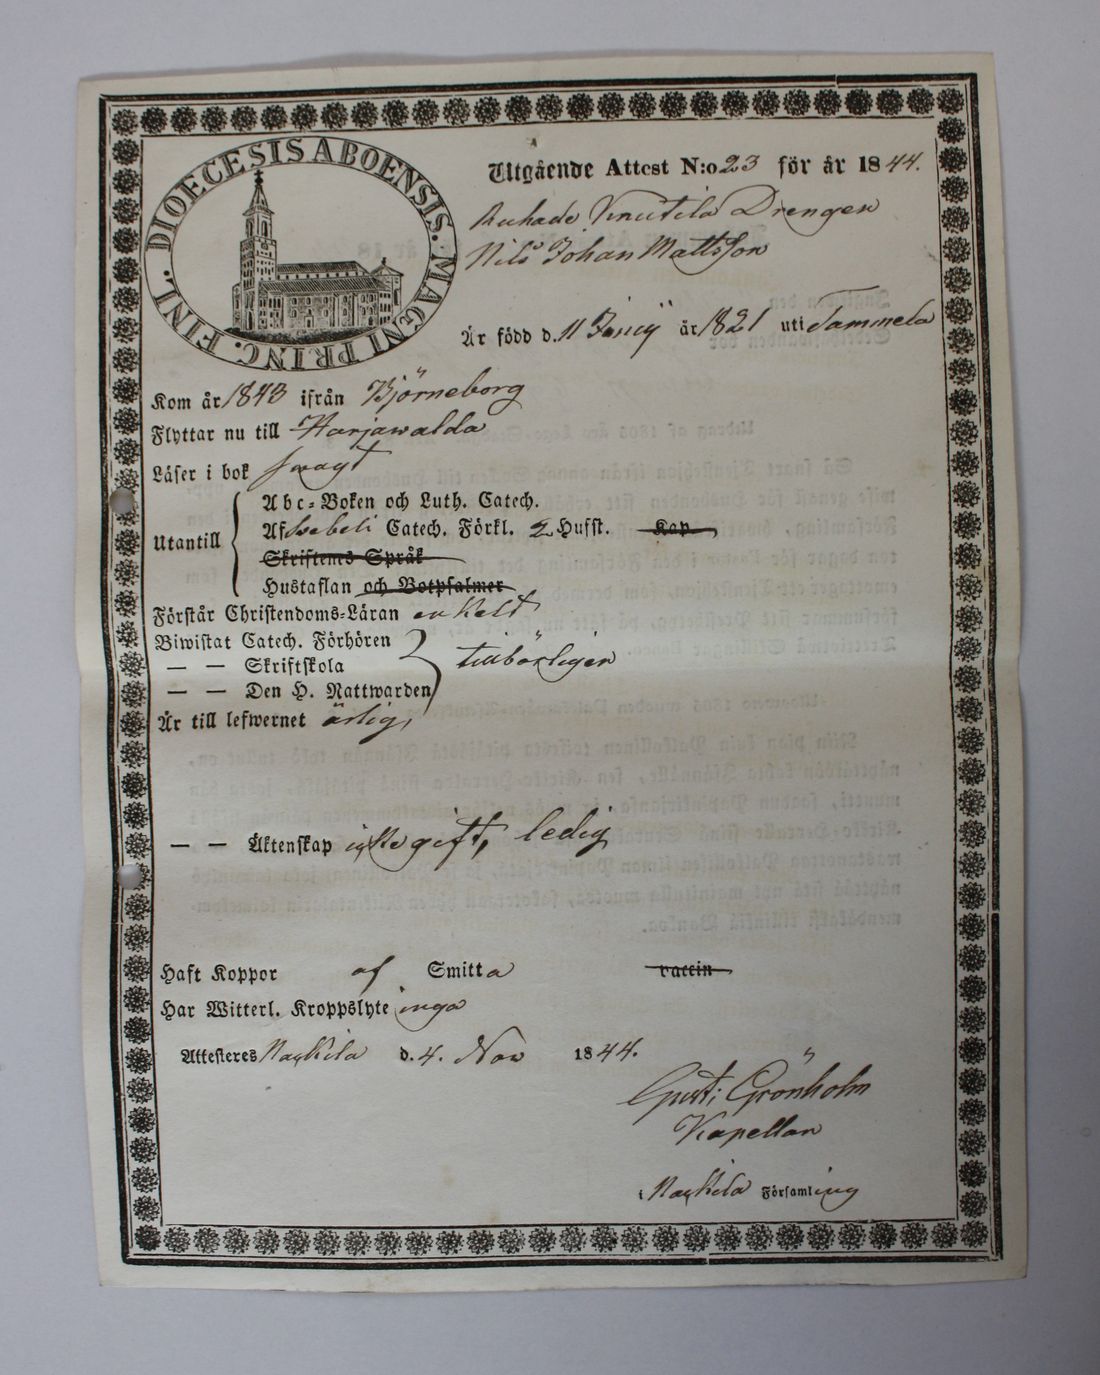 DIOECESIS ABOENSIS. MAGNI PRINC. FINL.
Utgående Attest N:o 23 för år 1844.
Knutila Drengen
Nils Johan Mattsson
Är född d. 11 Junij år 1821 uti Tammela
Kom år 1843 ifrån Björneborg
Flyttar nu till Harjawalda
Läser i bok swagt
Utantill
Abc-Boken och Luth. Catech.
Af Swebeli Catech. Förkl. 2 Hufst. Kap
Skriftens Språk
Hustaflan och Botpsalmer
Förstår Christendoms-Läran enkelt
Biwistat Catech. Förhören
— — Skriftskola tillbörligen
— — Den H. Nattwarden
Är till lefwernet ärlig,
— — Äktenskap icke gift, ledig
Haft Koppor af Smitta vaccin
Har Witterl. Kroppslyte inga
Attesteres Nackila d. 4. Nov 1844.
Gust: Grönholm
Kapellan
i Nackila Församling